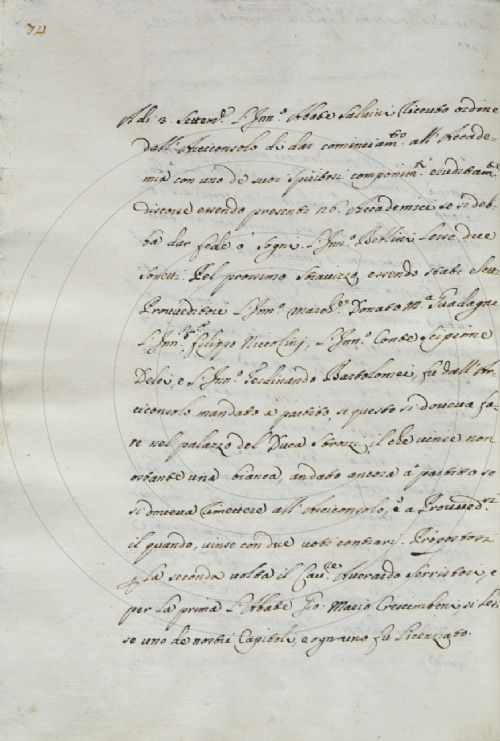 74
A di 3. Settem.e L'Inn.o Abbate Salvini riceuto ordine
dall'Arciconsolo de dar cominciam.to all'Accade-
mia con uno de suoi spiritosi componim.ti eruditam.te
discorse essendo presenti 26. Accademici se si deb-
ba dar fede a' sogni. L'Inn.o Bellini lesse due
sonetti. Pel prossimo stravizzo essendo stati eletti
Provveditore L'Inn.o March.e Donato M.a Guadagni
L'Inn.o Filippo Niccolini, L'Inn.o Conte Scipione
Delci, e L'Inn.o Ferdinando Bartolomei, fu dall'Ar-
ciconsolo mandato a partito, se questo si doveva fa-
re nel palazzo del Duca Strozzi, il che vinse non
ostante una bianca, andato ancora a partito se
si doveva rimettere all'Arciconsolo, e a Provved.ri
il quando, vinse con due voti contrarj. Propostosi
la seconda volta il Cav.re Averardo Serristori, e
per la prima L'Abate Gio: Mario Crescimbeni, si les-
se uno de nostri Capitoli, e ogn'uno fu licenziato.